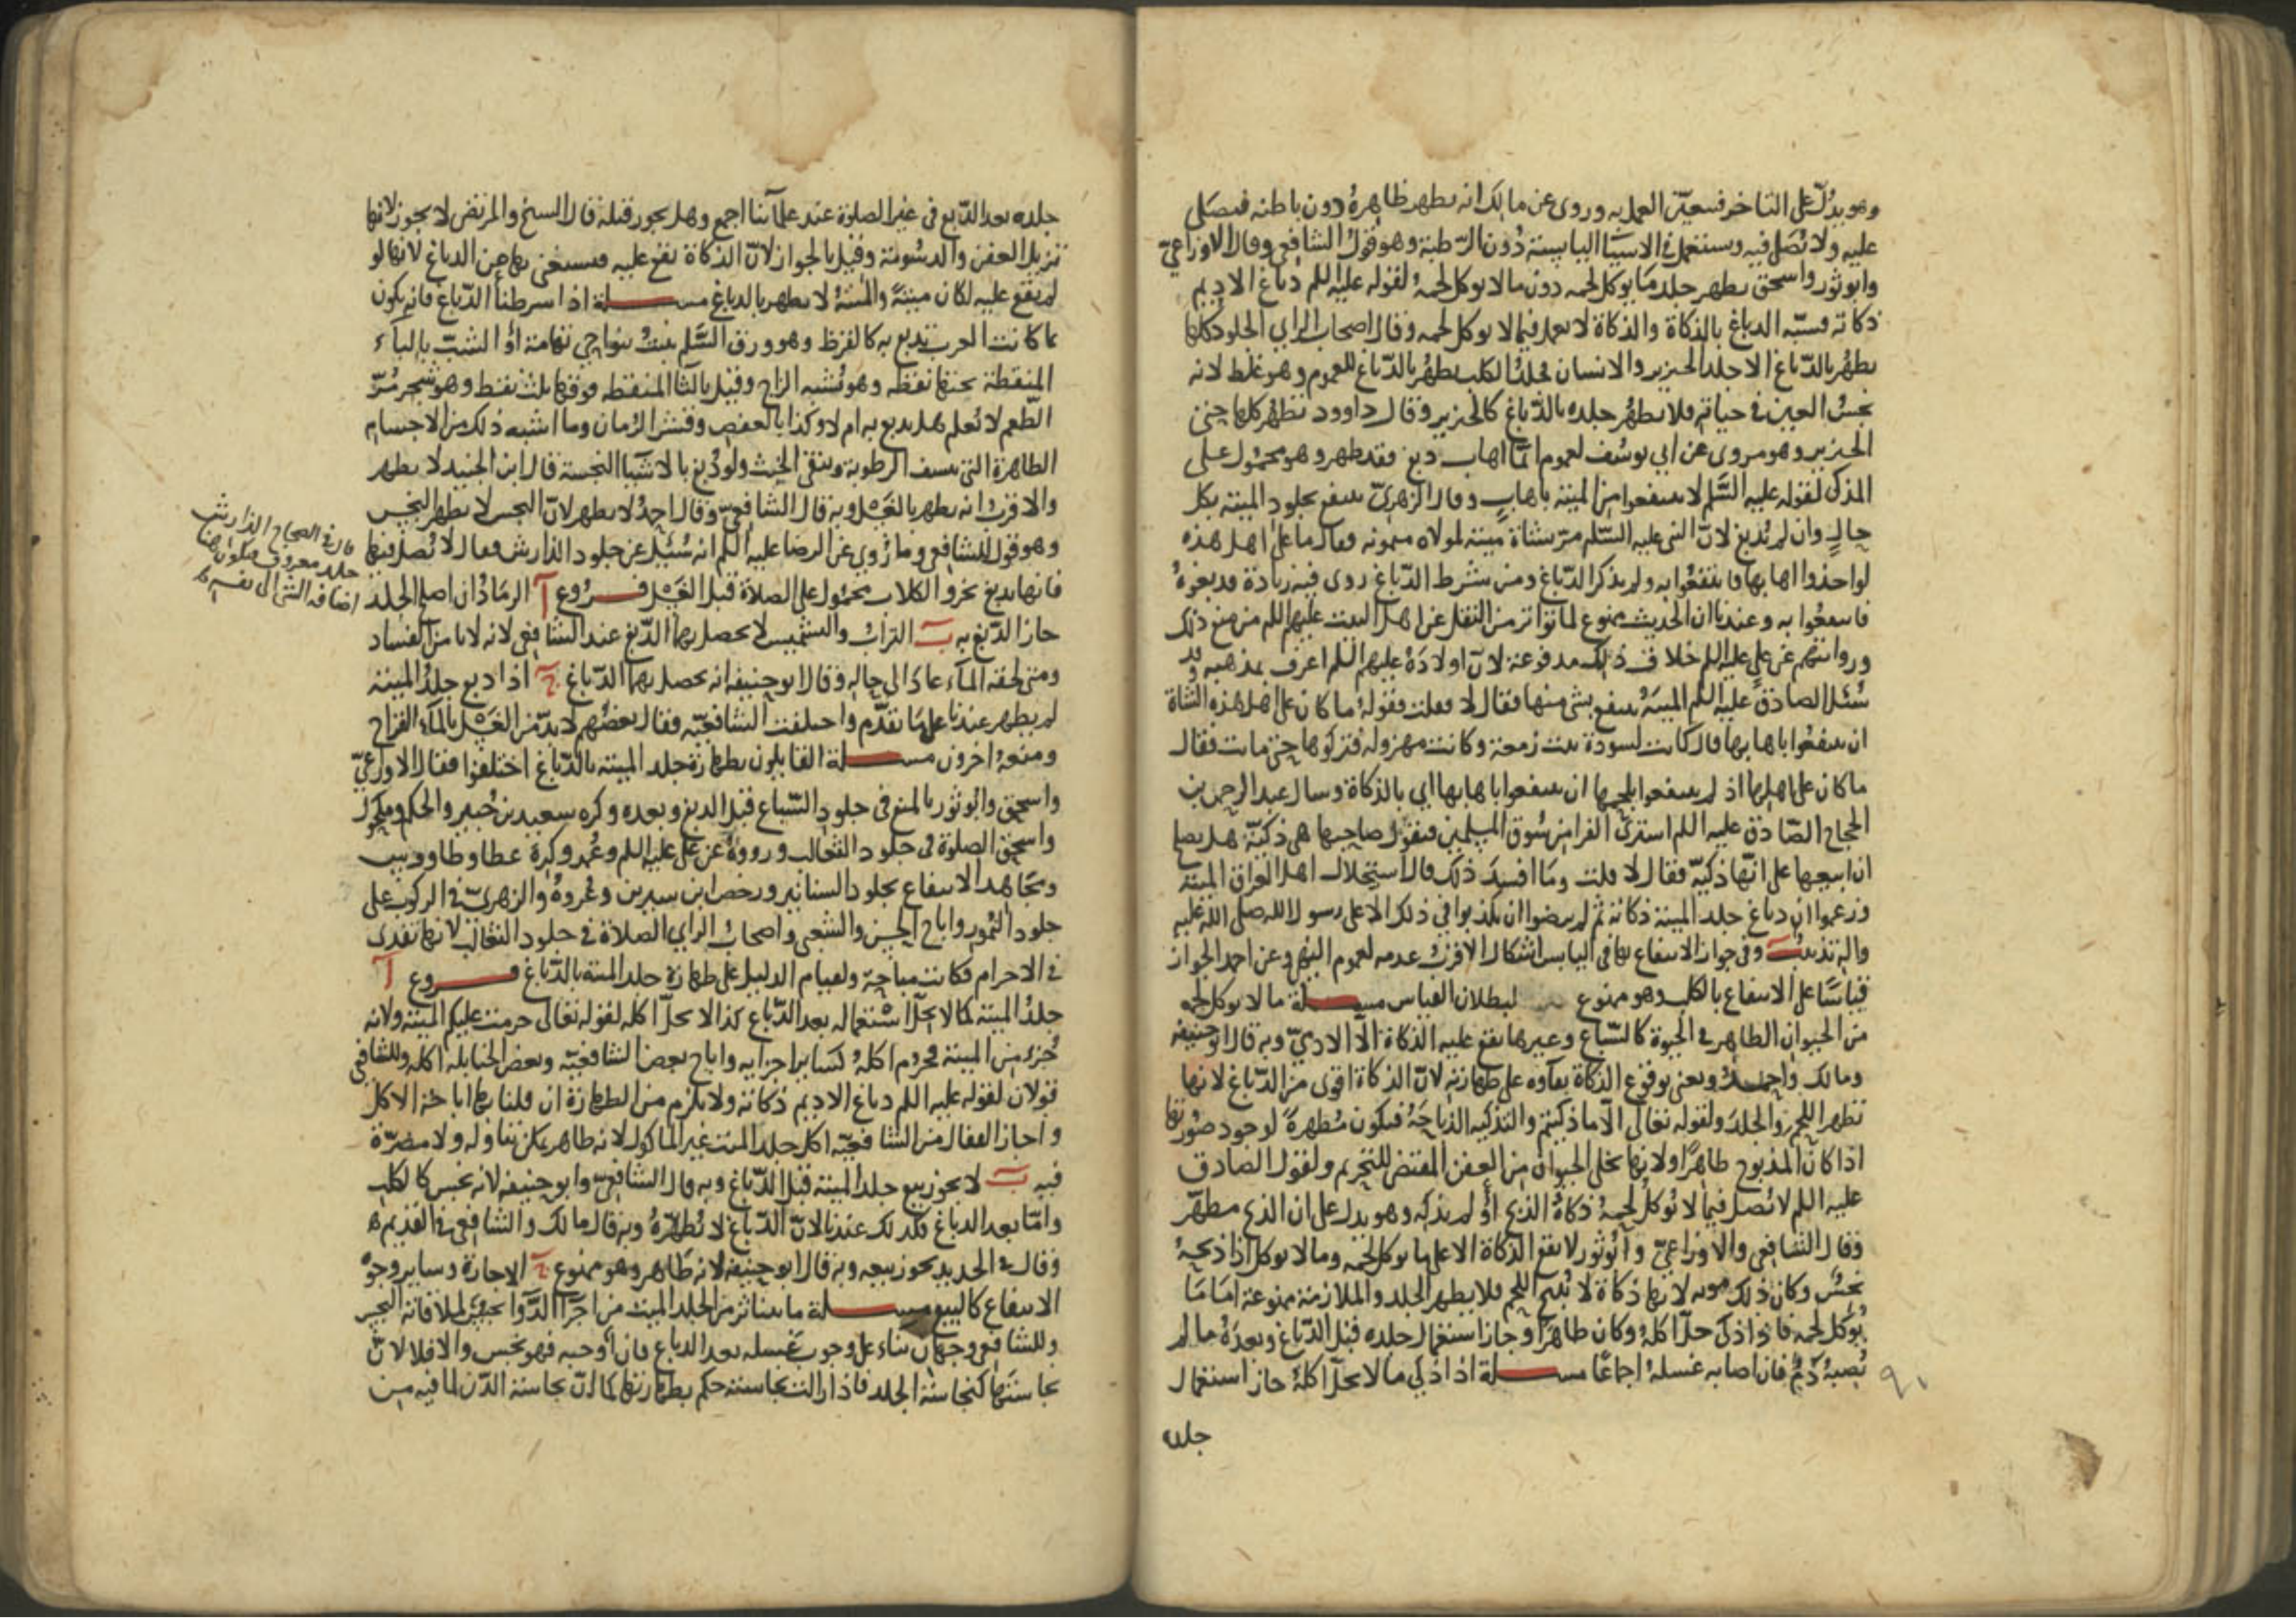 وهو يدل على التاخر فيتعين العمل به وروى عن مالك انه يطهر ظاهره دون باطنه فيصلى
عليه ولا تصلى فيه ويستعمل في الاشيا اليابسة دون الرطبة وهو قول الشافعي وقال الاوزاعي
وابو ثور واسحق يطهر جلد ما يوكل لحمه دون ما لا يوكل لحمه لقوله عليه السلم دباغ الاديم
ذكاته فشبه الدباغ بالذكاة والذكاة لا تعمل فيما لا يوكل لحمه وقال اصحاب الراي الجلود كلها
يطهر بالدباغ الا جلد الخنزير والانسان فجلد الكلب يطهر بالدباغ للعموم وهو غلط لانه
نجس العين في حياته فلا يطهر جلده بالدباغ كالخنزير وقال داوود تطهر كلها حتى
الخنزير وهو مروى عن ابي يوسف لعموم ايما اهاب دبغ فقد طهر وهو محمول على
المذكى لقوله عليه السلم لا تنتفعوا من الميتة باهاب وقال الزهري ينتفع بجلود الميتة بكل
حال وان لم يدبغ لان النبي عليه السلم مر بشاة ميتة لمولاه ميمونه فقال ما على اهل هذه
لو اخذوا اهابها فانتفعوا به ولم يذكر الدباغ ومن شرط الدباغ روى فيه زيادة فدبغوه
فانتفعوا به وعندنا ان الحديث ممنوع لما تواتر من النقل عن اهل البيت عليهم السلم من منع ذلك
وروايتهم عن علي عليه السلم خلاف ذلك مدفوعة لان اولاده عليهم السلم اعرف بمذهبه وقد
سئل الصادق عليه السلم الميتة ينتفع بشي منها فقال لا فقلت فقوله ما كان على اهل هذه الشاة
ان ينتفعوا باهابها قال كانت لسودة بنت زمعة وكانت مهزولة فتركوها حتى ماتت فقال
ما كان على اهلها اذ لم ينتفعوا بلحمها ان ينتفعوا باهابها اي بالذكاة وسال عبد الرحمن بن
الحجاج الصادق عليه السلم اشترى الفرا من سوق المسلمين فيقول صاحبها هي ذكية هل يصلح
ان ابيعها على انها ذكية فقال لا قلت وما افسد ذلك قال استحلال اهل العراق الميتة
وزعموا ان دباغ جلد الميتة ذكاته ثم لم يرضوا ان يكذبوا في ذلك الا على رسول الله صلى الله عليه
واله تذنيب وفي جواز الانتفاع بها في اليابس اشكال الاقرب عدمه لعموم النهي وعن احمد الجواز
قياسا على الانتفاع بالكلب وهو ممنوع لبطلان القياس مسلة ما لا يوكل لحمه
من الحيوان الطاهر في الحيوة كالسباع وغيرها يقع عليه الذكاة الا الادمي وبه قال ابو حنيفه
ومالك واحمد ونعني بوقوع الذكاة بقاوه على طهارته لان الذكاة اقوى من الدباغ لانها
تطهر اللحم والجلد ولقوله تعالى الا ما ذكيتم والتذكيه الذباحة فيكون مطهرة لوجود صورتها
اذا كان المذبوح طاهرا ولانها تخلى الحيوان من العفن المقتضى للتحريم ولقول الصادق
عليه السلم لا تصل فيما لا يوكل لحمه ذكاه الذبح او لم يذكه وهو يدل على ان الذبح مطهر
وقال الشافعي والاوزاعي وابو ثور لا يقع الذكاة الا على ما يوكل لحمه وما لا يوكل اذا ذبحه
نجس وكان ذلك موته لانها ذكاة لا تبيح اللحم فلا يطهر الجلد والملازمة ممنوعة اما ما
يوكل لحمه فانه اذا ذكى حل اكله وكان طاهرا وجاز استعمال جلده قبل الدباغ وبعده ما لم
يصبه دم فان اصابه غسله اجماعا مسلة اذا ذكي ما لا يحل اكله جاز استعمال
جلده
٩١
جلده بعد الدباغ في غير الصلوة عند علمائنا اجمع وهل يجوز قبله قال الشيخ والمرتضى لا يجوز لانها
تزيل العفن والدسومة وقيل بالجواز لان الذكاة يقع عليه فيستغنى بها عن الدباغ لانها لو
لم يقع عليه لكان ميتة والميتة لا يطهر بالدباغ مسلة اذا شرطنا الدباغ فانه يكون
بما كانت العرب تدبغ به كالقرظ وهو ورق السلم ينبت بنواحي تهامة او الشب بالباء
المنقطة تحتها نقطه وهو يشبه الزاج وقيل بالثا المنقطه فوقها بثلث نقط وهو شجر مر
الطعم لا نعلم هل يدبغ به ام لا وكذا بالعفص وقشر الرمان وما اشبه ذلك من الاجسام
الطاهرة التي ينشف الرطوبة وينقى الخبث ولو دبغ بالاشيا النجسة قال ابن الجنيد لا يطهر
والاقرب انه يطهر بالغسل وبه قال الشافعي وقال احمد لا يطهر لان النجس لا يطهر النجس
وهو قول للشافعي وما روي عن الرضا عليه السلم انه سئل عن جلود الدارش فقال لا تصل فيها
فانها تدبغ بخرو الكلاب محمول على الصلاة قبل الغسل فروع آ الرماد ان اصلح الجلد
جاز الدبغ به ب التراب والتشميس لا يحصل بهما الدبغ عند الشافعي لانه لا يامن الفساد
ومتى لحقه الماء عاد الى حاله وقال ابو حنيفه انه يحصل بهما الدباغ ج اذا دبغ جلد الميتة
لم يطهر عندنا على ما تقدم واختلفت الشافعيه فقال بعضهم لا بد من الغسل بالماء القراح
ومنعه اخرون مسلة القايلون بطهارة جلد الميتة بالدباغ اختلفوا فقال الاوزاعي
واسحق وابو ثور بالمنع في جلود السباع قبل الدبغ وبعده وكره سعيد بن جبير والحكم ومكحول
واسحق الصلوة في جلود الثعالب ورووه عن علي عليه السلم وعمر وكره عطا وطاووس
ومجاهد الانتفاع بجلود السنانير ورخص ابن سيرين وعروة والزهري في الركوب على
جلود النمور واباح الحسن والشعبي واصحاب الراي الصلاة في جلود الثعالب لانها تفدى
في الاحرام فكانت مباحة ولقيام الدليل على طهارة جلد الميتة بالدباغ فروع آ
جلد الميتة كما لا يحل استعماله بعد الدباغ كذا لا يحل اكله لقوله تعالى حرمت عليكم الميتة ولانه
جزء من الميتة فحرم اكله كساير اجزايه واباح بعض الشافعيه وبعض الحنابلة اكله وللشافعي
قولان لقوله عليه السلم دباغ الاديم ذكاته ولا يلزم من الطهارة ان قلنا بها اباحة الاكل
واجاز القفال من الشافعيه اكل جلد الميت غير الماكول لانه طاهر يمكن تناوله ولا مضرة
فيه ب لا يجوز بيع جلد الميتة قبل الدباغ وبه قال الشافعي وابو حنيفه لانه نجس كالكلب
واما بعد الدباغ فكذلك عندنا لان الدباغ لا تطهره وبه قال مالك والشافعي في القديم
وقال في الجديد يجوز بيعه وبه قال ابو حنيفه لانه طاهر وهو ممنوع ج الاجارة وساير وجوه
الانتفاع كالبيع مسلة ما يتناثر من الجلد الميت من اجزاء الدوا نجس لملاقاته النجس
وللشافعي وجهان بناء على وجوب غسله بعد الدباغ فان اوجبه فهو نجس والا فلا لان
نجاستها كنجاسة الجلد فاذا زالت نجاسته حكم بطهارتها كما ان نجاسة الدن لما فيه من
قال في الصحاح الدارش
جلد معروف فيكون هنا
اضافه الشي الى نفسه